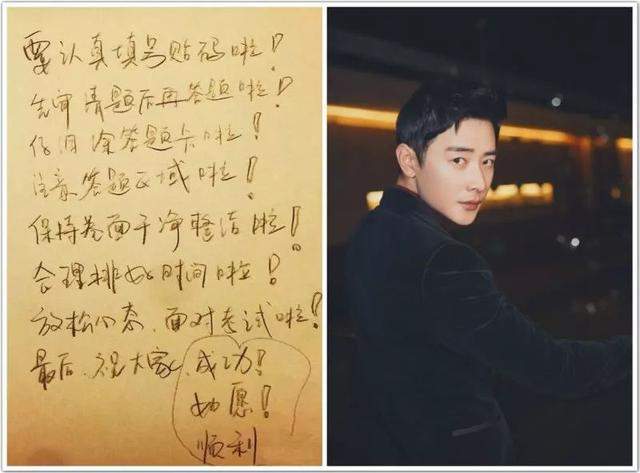 要认真填写贴码啦！
先审清题后再答题啦！
仔细涂答题卡啦！
注意答题区域啦！
保持卷面干净整洁啦！
合理排好时间啦！
放松心态、面对考试啦！
最后、祝大家、成功！
如愿！
顺利